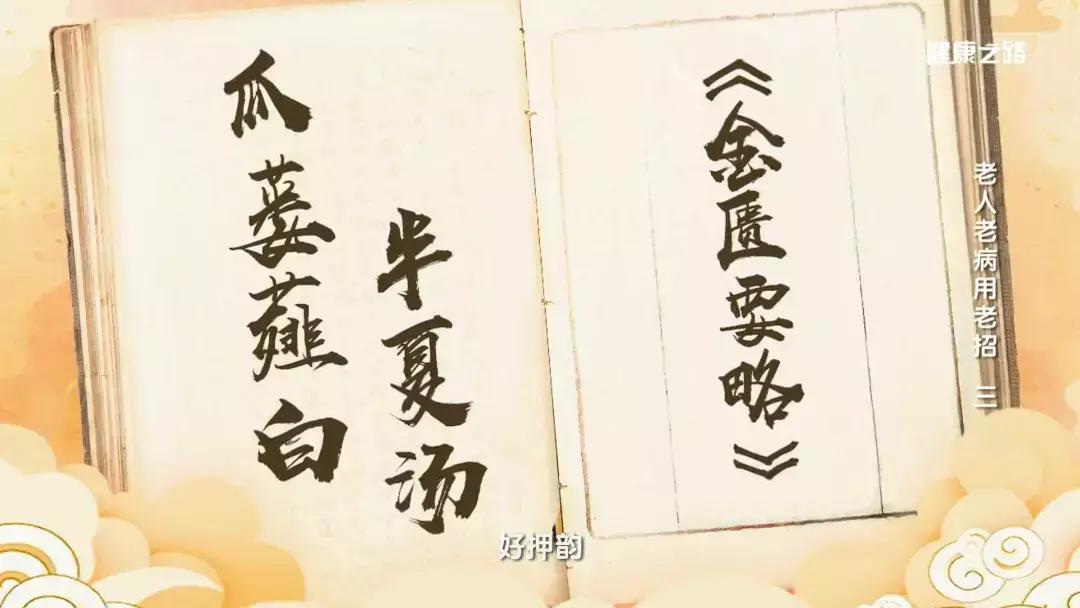 健康之路
老人老病用老招 三
《金匮要略》
瓜蒌薤白
半夏汤
好押韵